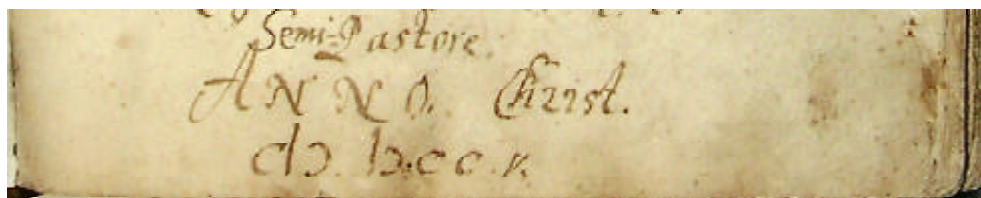 Semi-Pastore.
ANNO. Christ.
cIↄ. Iↄ.c c.v.